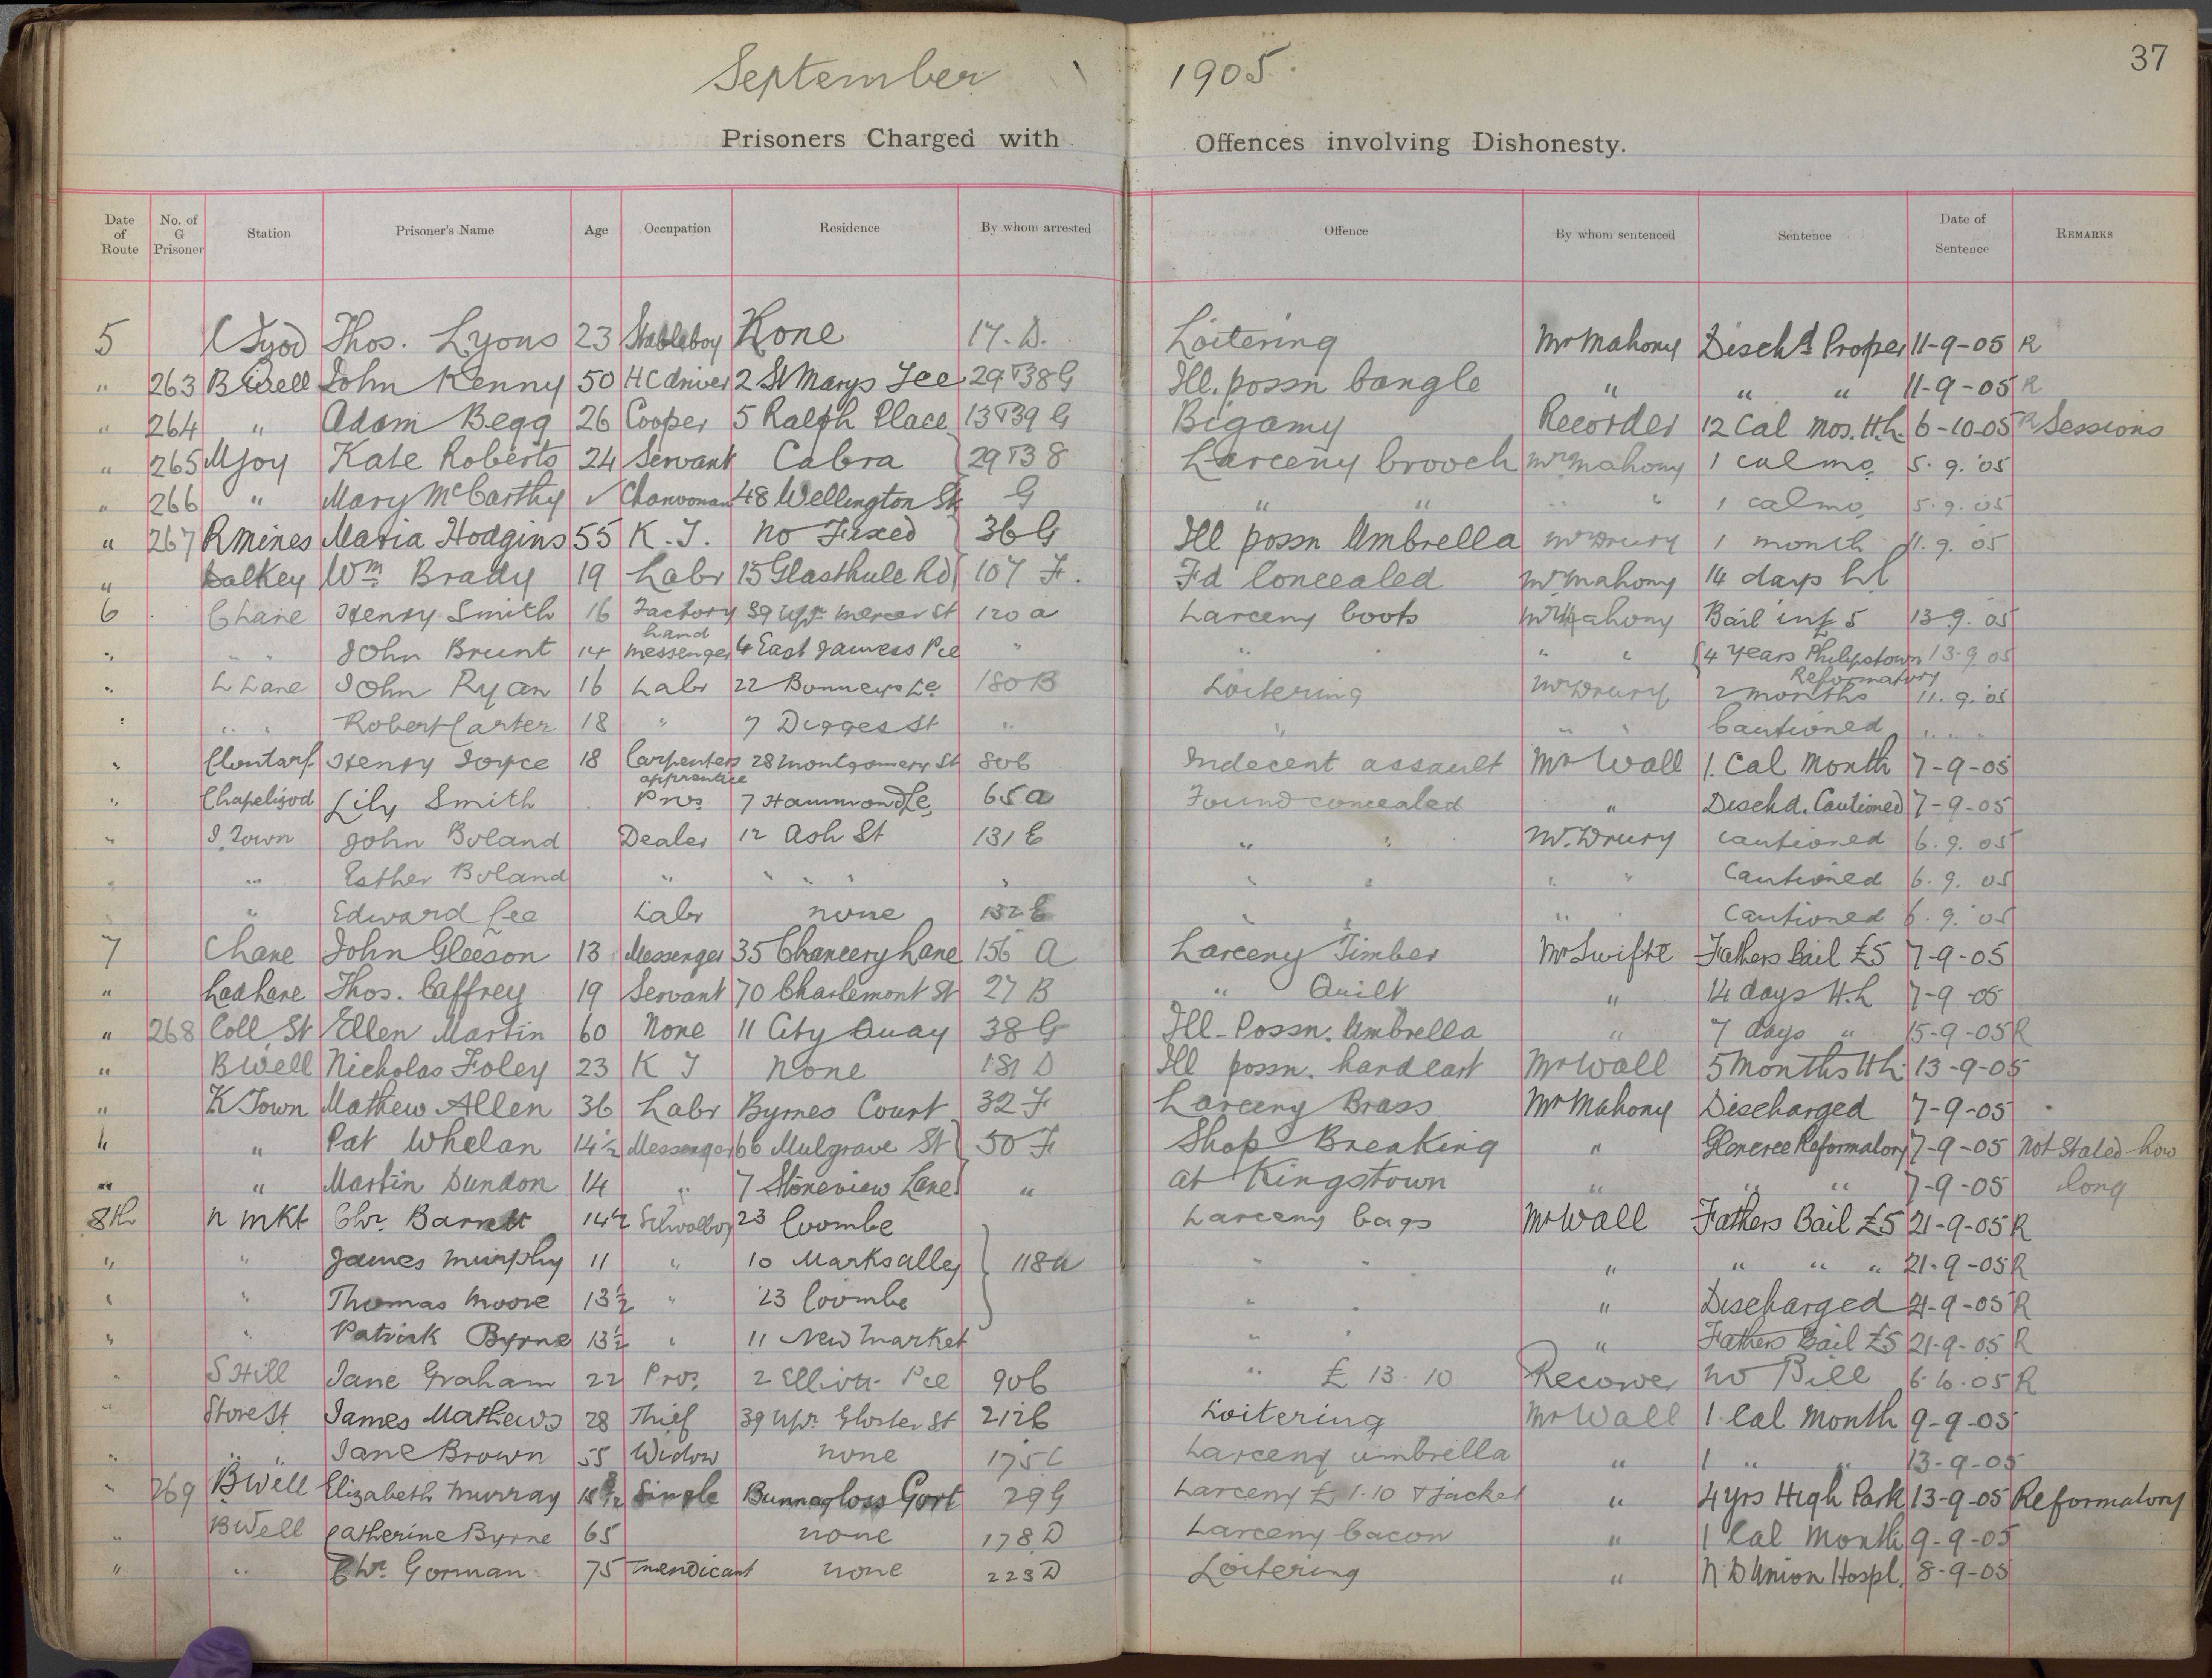 37
September 1905.
Prisoners Charged with Offences involving Dishonesty.
Date of Route No. of G Prisoner Station Prisoner's Name Age Occupation Residence By whom arrested Offence By whom sentenced Sentence Date of Sentence REMARKS
5 Thos. Lyons 23 Stableboy None 17. D. Loitering Mr Mahony Disch'd Proper 11-9-05 R
" 263 B Well John Kenny 50 H C driver 2 St Marys Tce 29 & 38 G Ill. possn bangle " " " 11-9-05 R
" 264 " Adam Begg 26 Cooper 5 Ralph Place 13 & 39 G Bigamy Recorder 12 Cal Mos. H.L. 6-10-05 R Sessions
" 265 Mjoy Kate Roberts 24 Servant Cabra 29 & 38 Larceny brooch Mr Mahony 1 cal mo. 5. 9. '05
" 266 " Mary McCarthy ✓ Charwoman 48 Wellington St G " " " " 1 cal mo. 5. 9. 05
" 267 Rmines Maria Hodgins 55 K. T. No Fixed 36 G Ill possn Umbrella Mr Drury 1 month 11. 9. 05
" Dalkey Wm Brady 19 Labr 15 Glasthule Rd 107 F. Fd Concealed Mr Mahony 14 days hl
6 C Lane Henry Smith 16 Factory hand 39 Upr Mercer St 120 a Larceny boots Mr Mahony Bail in £5 13 9. 05
" " " John Brunt 14 Messenger 6 East James's Pce " " " " " 4 years Philipstown Reformatory 13. 9 05
" L Lane John Ryan 16 Labr 22 Bonneys Le 180 B Loitering Mr Drury 2 months 11. 9. '05
" " " Robert Carter 18 " 7 Digges St " " " " Cautioned " " "
" Clontarf Henry Joyce 18 Carpenters apprentice 28 Montgomery St 80 C Indecent assault Mr Wall 1. Cal Month 7-9-05
" Chapelizod Lily Smith Pros 7 Hammond Le 65 a Found concealed " Dischd. Cautioned 7-9-05
" I. Town John Boland Dealer 12 Ash St 131 E " " Mr. Drury cautioned 6. 9. 05
" " Esther Boland " " " " " " " " " Cautioned 6. 9. 05
" Edward Lee Labr none 132 E " " " Cautioned 6. 9. '05
7 C Lane John Gleeson 13 Messenger 35 Chancery Lane 156 A Larceny Timber Mr Swifte Fathers bail £5 7-9-05
" Lad Lane Thos. Caffrey 19 Servant 70 Charlemont St 27 B " Quilt " 14 days H.L 7-9-05
" 268 Coll. St Ellen Martin 60 None 11 City Quay 38 G Ill-Possn. Umbrella " 7 days " 15-9-05 R
" B Well Nicholas Foley 23 K T None 181 D Ill possn. handcart Mr Wall 5 Months H h. 13-9-05
" K Town Mathew Allen 36 Labr Byrnes Court 32 F Larceny Brass Mr Mahony Discharged 7-9-05
" " Pat Whelan 14½ Messenger 66 Mulgrave St 50 F Shop Breaking " Glencree Reformatory 7-9-05 Not Stated how
" " Martin Dundon 14 " 7 Stoneview Lane " at Kingstown " " " 7-9-05 long
8th N Mkt Chr. Barrett 14½ Schoolboy 23 Coombe Larceny bags Mr Wall Fathers Bail £5 21-9-05 R
" " James Murphy 11 " 10 Marks alley 118 a " " " " " " 21-9-05 R
" " Thomas Moore 13½ " 23 Coombe " " " Discharged 21-9-05 R
" " Patrick Byrne 13½ " 11 New Market " " " Fathers Bail £5 21-9-05 R
" S Hill Jane Graham 22 Pros. 2 Elliott Pce 90 C " £ 13. 10 Recorder No Bill 6. 10. 05 R
" Store St James Mathews 28 Thief 39 Upr. Gloster St 212 C Loitering Mr Wall 1. Cal Month 9-9-05
" " " Jane Brown 55 Widow none 175 C Larceny umbrella " 1 " " 13-9-05
" 269 B Well Elizabeth Murray Single Gort 29 G Larceny £ 1.10 & jacket " 4 yrs High Park 13-9-05 Reformatory
" B Well Catherine Byrne 65 none 178 D Larceny bacon " 1 Cal Month 9-9-05
" " Chr. Gorman 75 mendicant none 223 D Loitering " N. D Union Hospl. 8-9-05